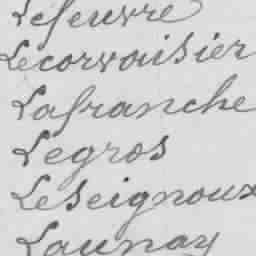 Lefeuvre
Lecorvaisier
Lafranche
Legros
Leseignoux
Launay